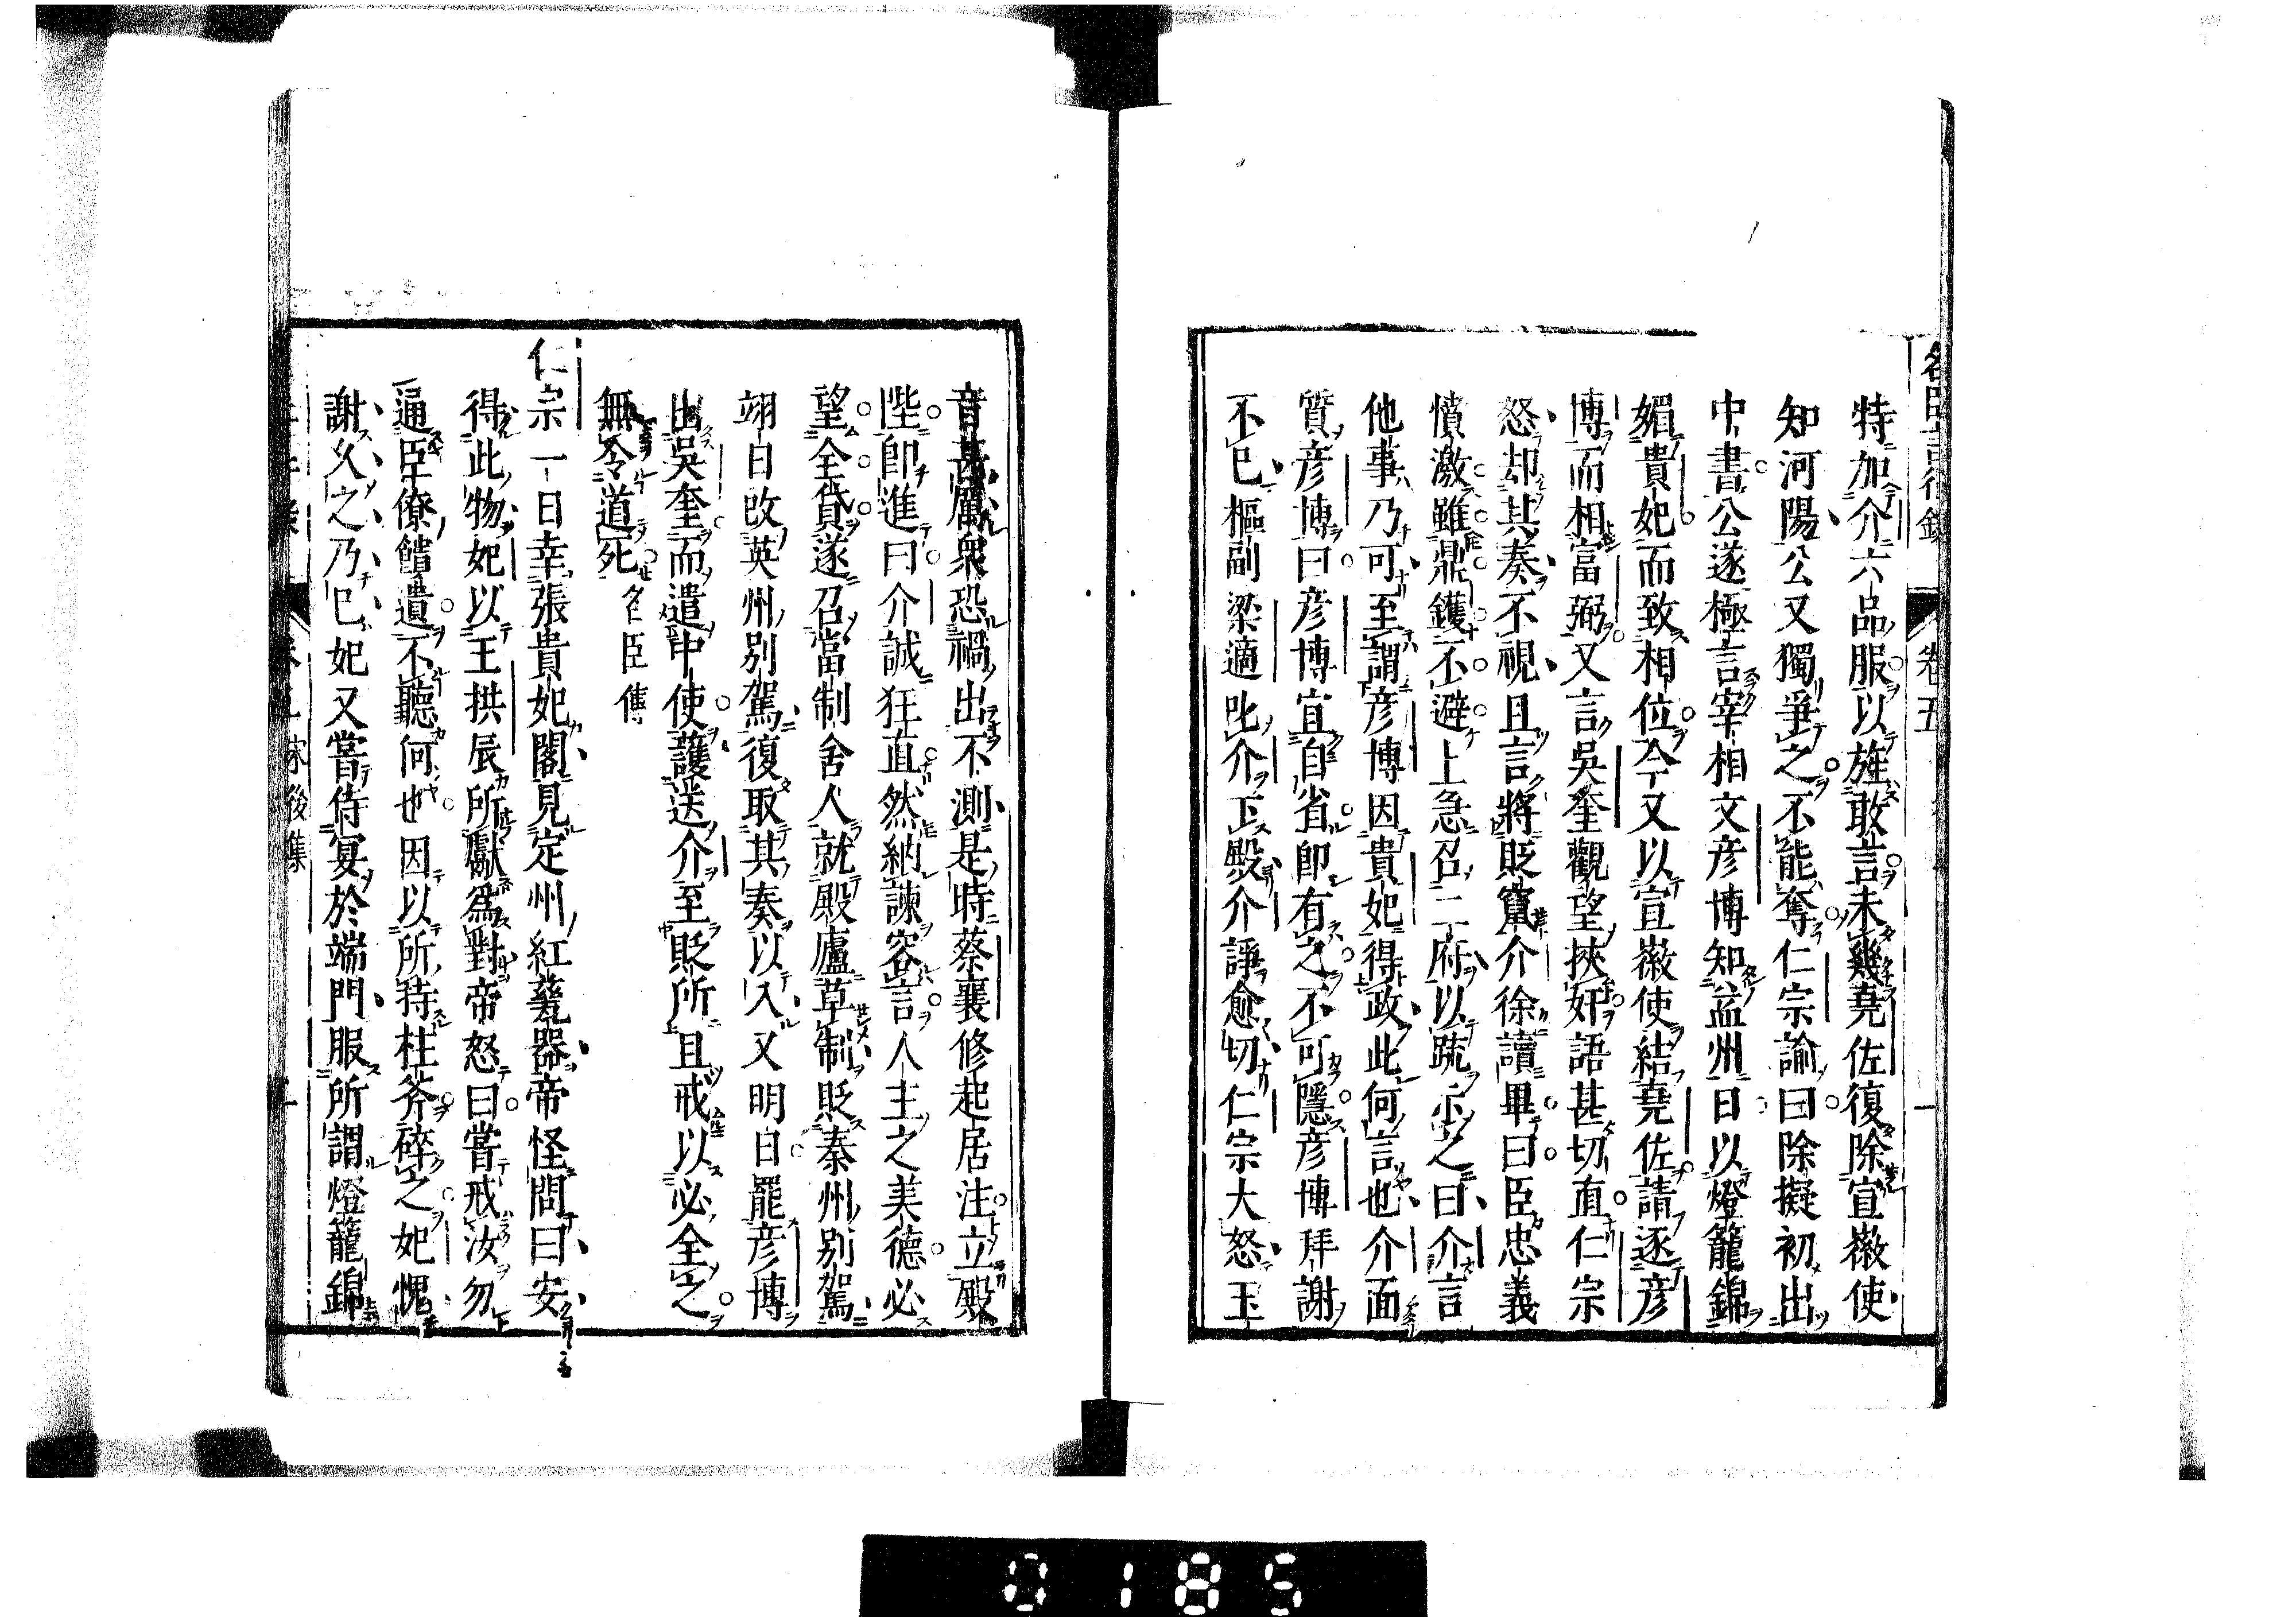 名臣言行錄 卷五 一
特加介六品服以旌敢言未幾堯佐復除宣徽使
知河陽公又獨爭之不能奪仁宗諭曰除擬初出
中書公遂極言宰相文彦博知益州日以燈籠錦
媚貴妃而致相位今又以宣徽使結堯佐請逐彦
博而相富弼又言吳奎觀望挾奸語甚切直仁宗
怒却其奏不視且言將貶竄介徐讀畢曰臣忠義
憤激雖鼎鑊不避上急召二府以疏示之曰介言
他事乃可至謂彦博因貴妃得政此何言也介面
質彦博曰彦博宜自省即有之不可隱彦博拜謝
不已樞副梁適叱介下殿介諍愈切仁宗大怒玉
音甚厲衆恐禍出不測是時蔡襄修起居注立殿
陛即進曰介誠狂直然納諫容言人主之美德必
望全貸遂召當制舍人就殿廬草制貶秦州別駕
翊日改英州別駕復取其奏以入又明日罷彦博
出吳奎而遣中使護送介至貶所且戒以必全之
無令道死 名臣傳
仁宗一日幸張貴妃閣見定州紅甆器帝怪問曰安
得此物妃以王拱辰所獻爲對帝怒曰嘗戒汝勿
通臣僚饋遺不聽何也因以所持柱斧碎之妃愧
謝久之乃已妃又嘗侍宴於端門服所謂燈籠錦
宋後集
0185